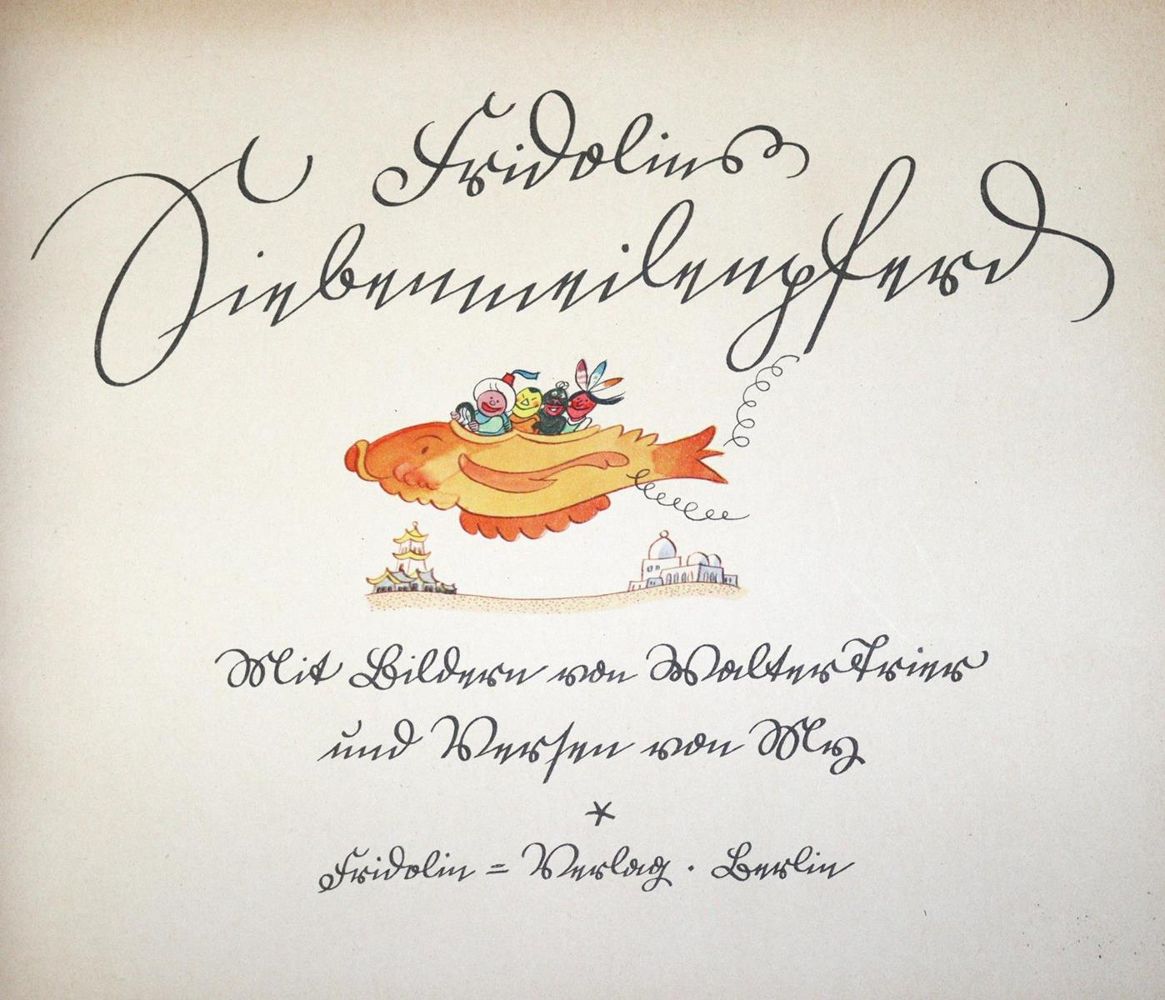 Fridolins
Siebenmeilenpferd
Mit Bildern von Walter Trier
und Versen von My
*
Fridolin = Verlag · Berlin